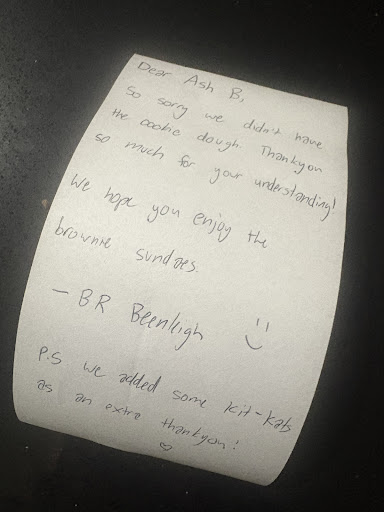 Dear Ash B,
So sorry we didn't have
the cookie dough. Thankyou
so much for your understanding!
We hope you enjoy the
brownie sundaes.
- BR Beenleigh :)
P.S we added some kit-kats
as an extra thankyou!
♡